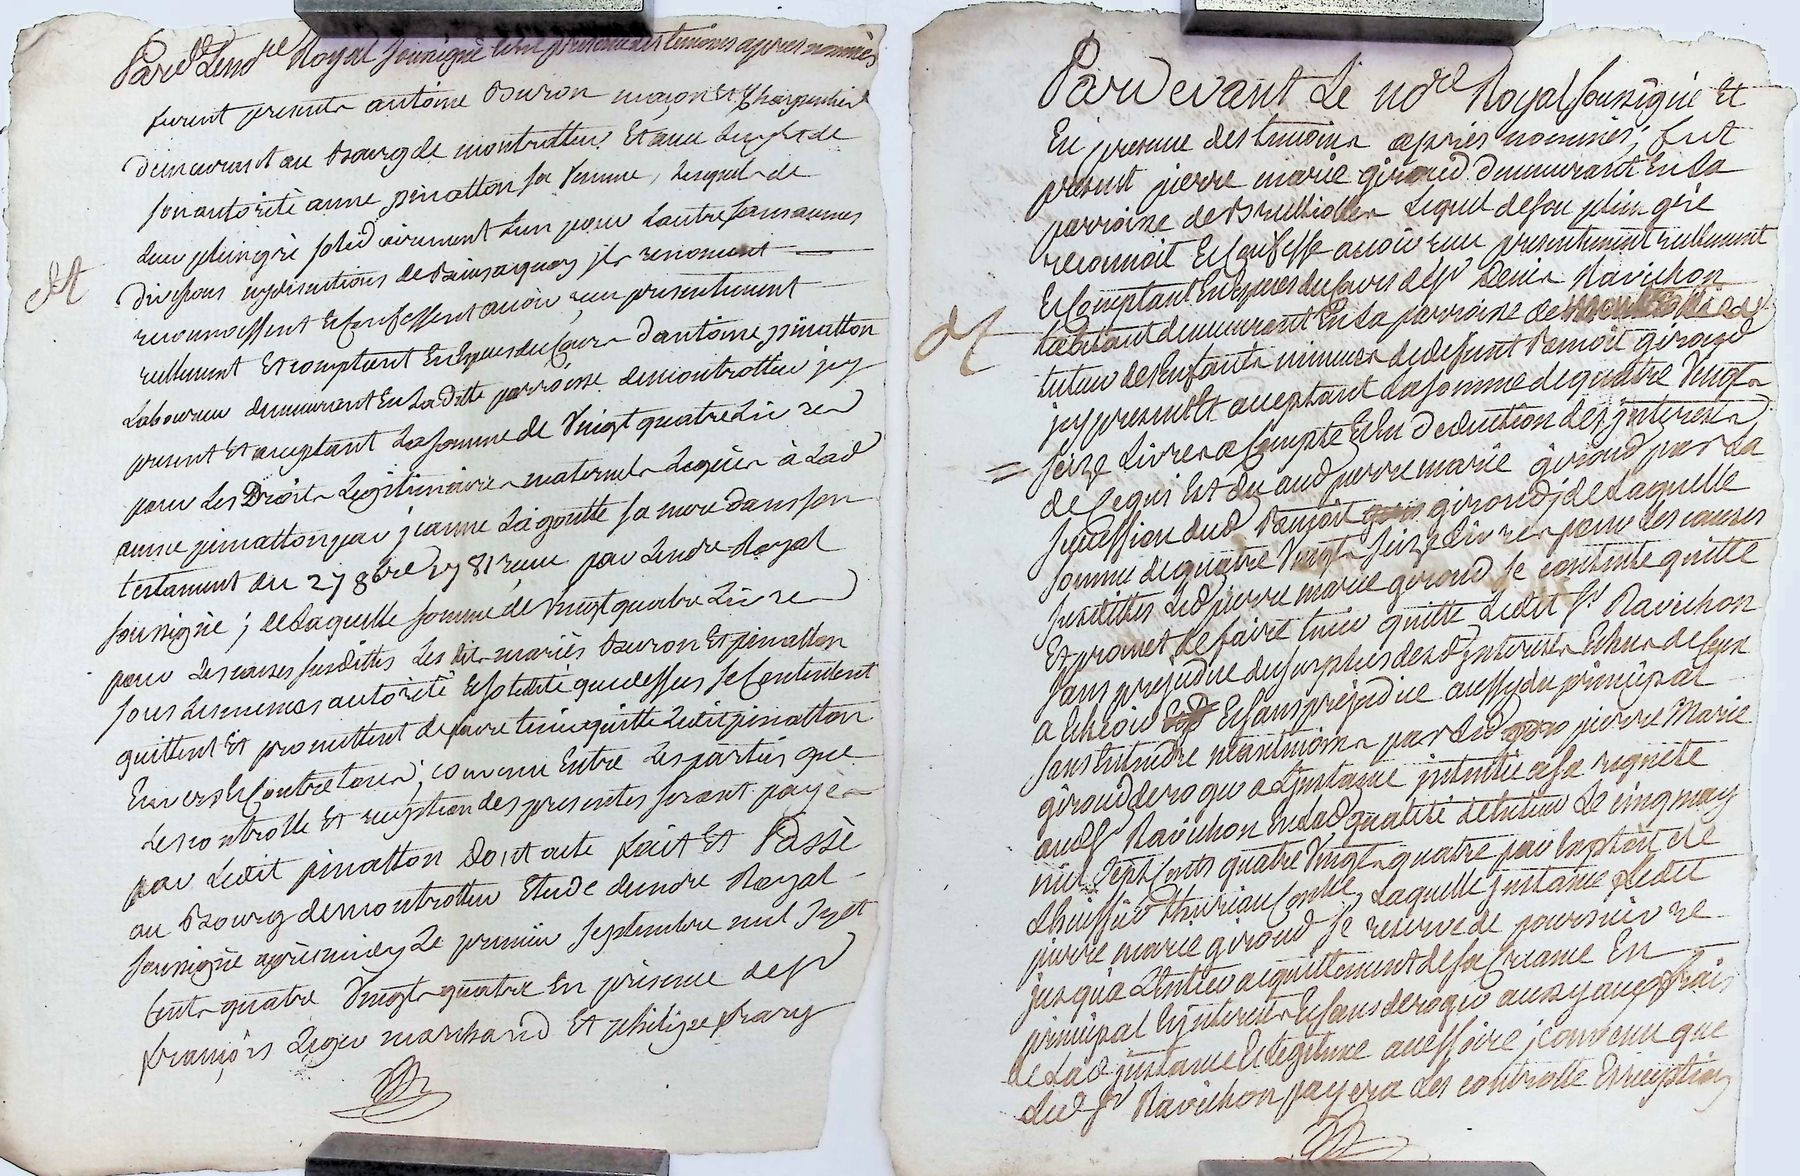 Pard. Le nore Royal soussigné et en presence des temoins apres nommés
furent presents antoine Buron maçon et Charpentier
demeurant au Bourg de montrottier Et avec Luy et de
son autorité anne pinatton sa femme, Lesquels de
Leur plein gré solidairement L'un pour L'autre sans aucunes
divisions ny discutions de Biens a quoy ils renoncent
reconnoissent Et Confessent avoir reçu presentement
reellement Et comptant En Especes du Cours d'antoine pinatton
Laboureur demeurant En La ditte parroisse de montrottier icy
present Et acceptant La somme de Vingt quatre Livres
pour Les Droits Legitimaires maternels Legués à Lad
anne pinatton par jeanne Lagoutte sa mere dans son
testament du 27 8bre 1781 reçu par Le nore Royal
soussigné ; de Laquelle somme de Vingt quatre Livres
pour Les causes susdittes Les dits mariés Buron Et pinatton
sous Les memes autorité Et solidité que dessus se Contentent
quittent Et promettent de faire tenir quitte Ledit pinatton
Envers Et Contre tous ; convenu Entre Les parties que
Les controlle Et reception des presentes seront payés
par Ledit pinatton Dont acte fait Et Passé
au Bourg de montrottier Etude du nore Royal
soussigné après midy Le premier septembre mil sept
Cents quatre Vingts quatre En présence de sr
françois Leger marchand Et philippe frary
Pardevant Le nore Royal soussigné Et
En presence des temoins après nommés, fut
present pierre marie giroud demeurant En La
parroisse de Brullioles Lequel de son plein gré
reconnoit Et Confesse avoir reçu presentement reellement
Et Comptant En Especes du Cours de sr Denis Ravichon
habitant demeurant En La parroisse de
tuteur des Enfants mineurs de defunt Benoit giroud
icy present Et acceptant La somme de quatre Vingts
= seize Livres a Compte Et En deduction des interests
de ce qui Est du aud pierre marie giroud par La
succession dud Benoit giroud ; de Laquelle
somme de quatre Vingts seize Livres pour Les causes
susdittes Led pierre marie giroud se contente quitte
Et promet de faire tenir quitte Ledit sr Ravichon
sans prejudice du surplus desd interests Echus de Ceux
a Echeoir Et sans prejudice aussy du principal
sans Entendre neantmoins par Led pierre Marie
giroud deroger a L'instance intentée a sa requete
aud sr Ravichon En lad qualité de tuteur Le cinq may
mil sept Cents quatre Vingts quatre par Exploit de
L'huissier Laquelle instance Ledit
pierre marie giroud se reserve de poursuivre
jusqu'a L'Entier acquittement de sa Creance En
principal Et interests Et sans deroger aussy aux frais
de Lad instance Et Legitime accessoire ; convenu que
Led sr Ravichon payera Les controlle Et reception